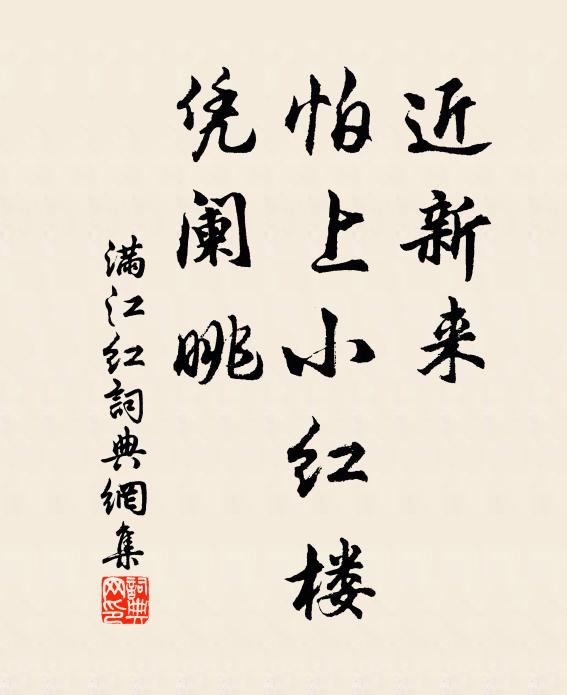 近新来
怕上小红楼
凭阑眺
满江红詞典網集
詞典网印